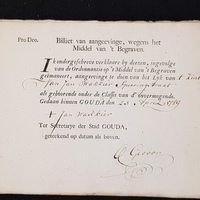 Pro Deo.
Billiet van aangeevinge, wegens het
Middel van 't Begraven.
Ik ondergeschreve verklaere by deezen, ingevolge
van de Ordonnantie op 't Middel van 't Begraven
geëmaneert, aangeevinge te doen van het Lyk van 't Kind
van Jan
als gehoorende onder de Classis van d' onvermogende.
Gedaan binnen GOUDA, den 20 April 1789
Jan
Ter Secretarye der Stad GOUDA,
geteekend op datum als boven.